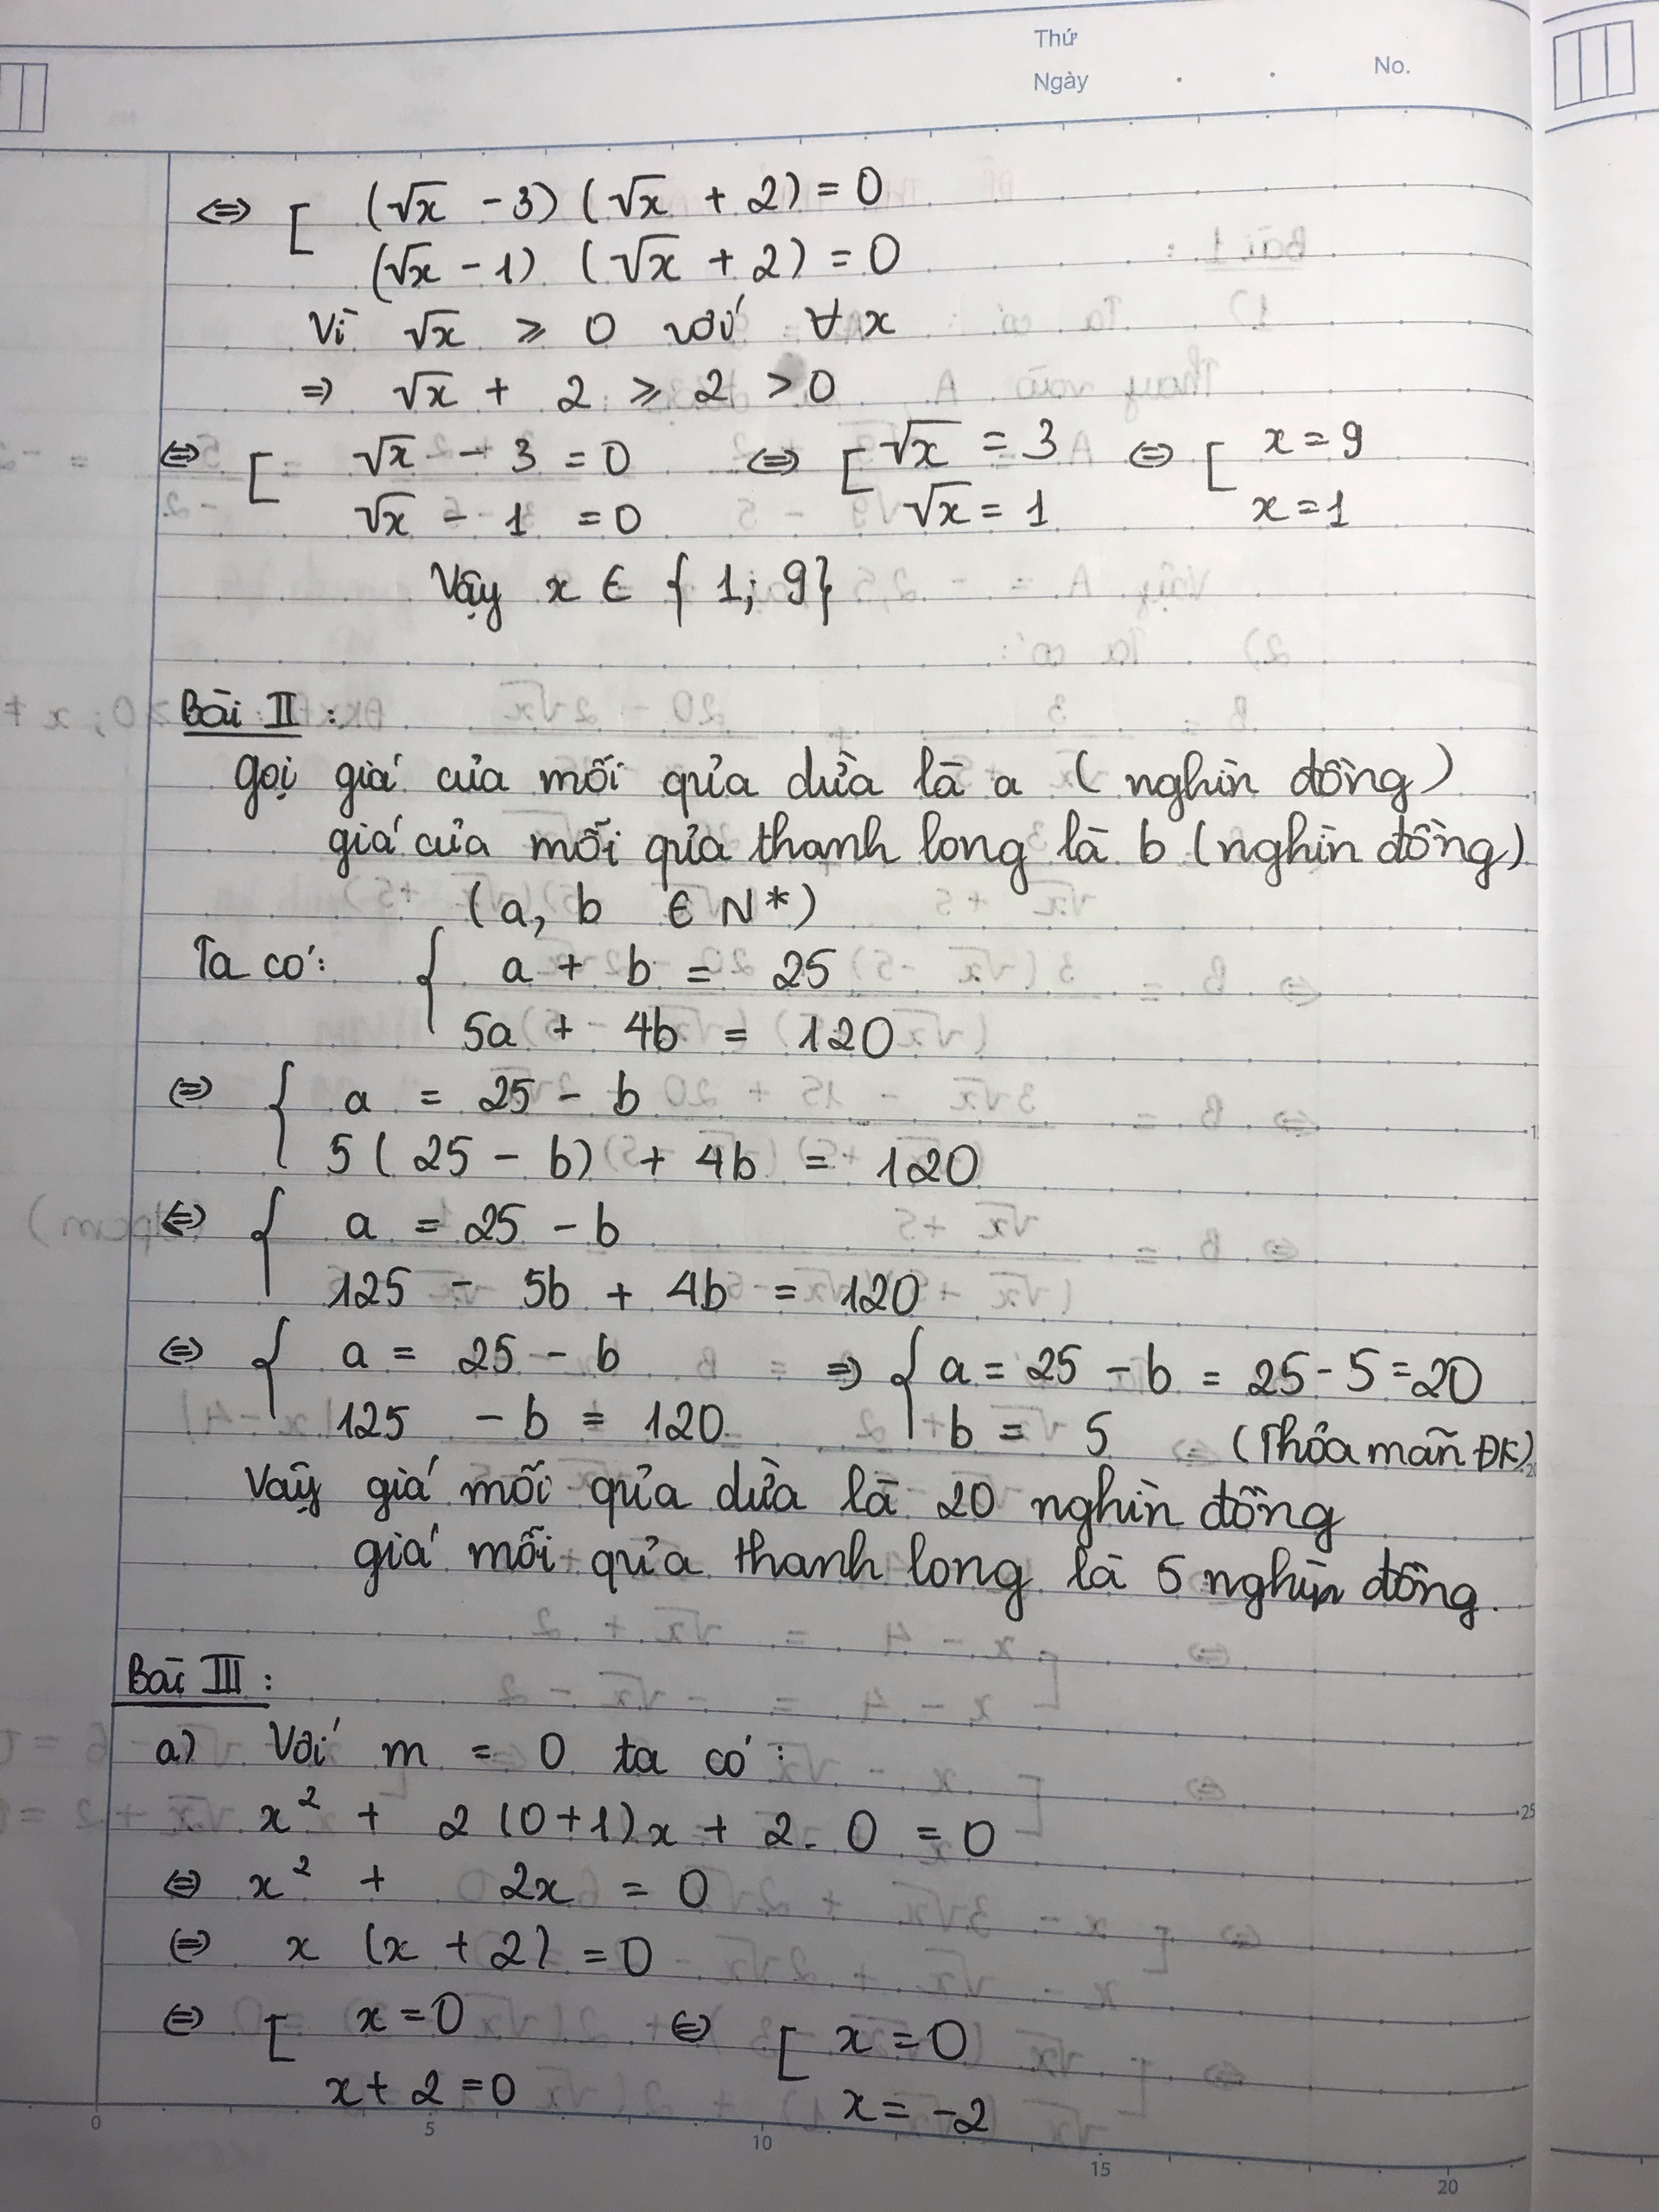 Thứ
Ngày . . No.
⇔ [ (√x - 3) (√x + 2) = 0
(√x - 1) (√x + 2) = 0
Vì √x ⩾ 0 với ∀x
⇒ √x + 2 ⩾ 2 > 0
⇔ [ √x - 3 = 0 ⇔ [ √x = 3 ⇔ [ x = 9
√x - 1 = 0 √x = 1 x = 1
Vậy x ∈ { 1; 9}
Bài II :
Gọi giá của mỗi quả dừa là a ( nghìn đồng )
giá của mỗi quả thanh long là b (nghìn đồng)
(a, b ∈ N*)
Ta có: { a + b = 25
5a + 4b = 120
⇔ { a = 25 - b
5( 25 - b) + 4b = 120
⇔ { a = 25 - b
125 - 5b + 4b = 120
⇔ { a = 25 - b ⇒ { a = 25 - b = 25 - 5 = 20
125 - b = 120 b = 5 (Thỏa mãn ĐK)
Vậy giá mỗi quả dừa là 20 nghìn đồng
giá mỗi quả thanh long là 5 nghìn đồng.
Bài III :
a) Với m = 0 ta có :
x² + 2(0+1)x + 2. 0 = 0
⇔ x² + 2x = 0
⇔ x (x + 2) = 0
⇔ [ x = 0 ⇔ [ x = 0
x + 2 = 0 x = -2
0 5 10 15 20